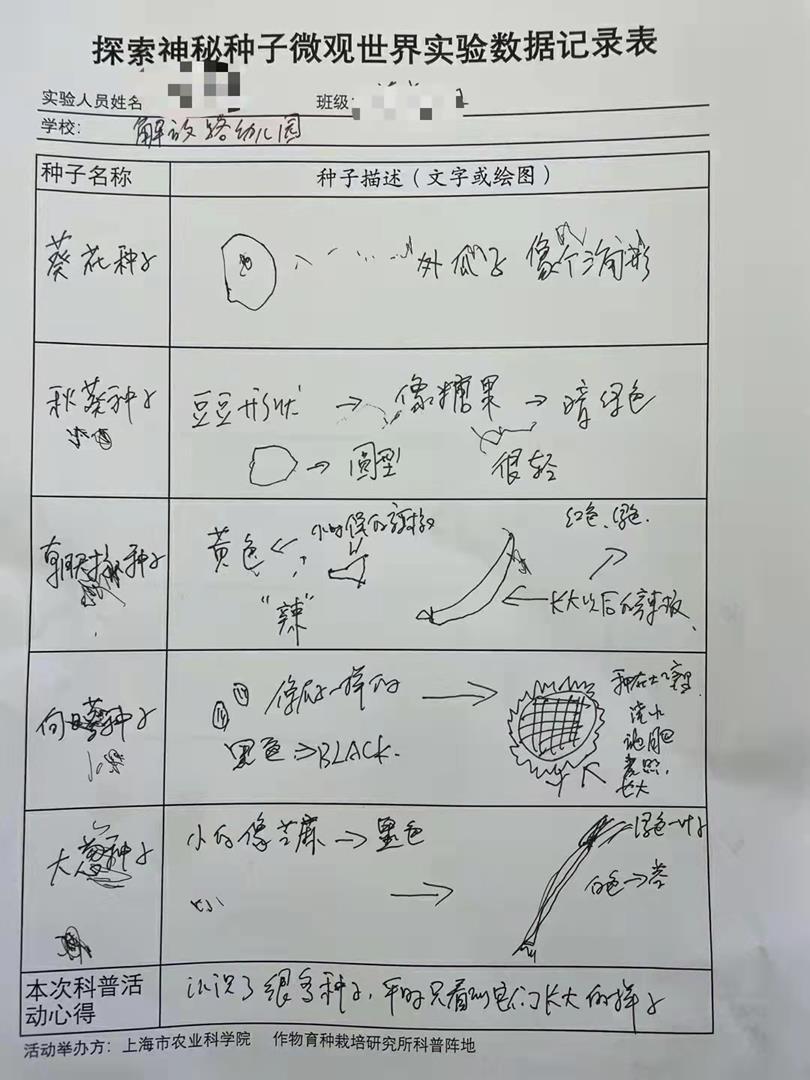 探索神秘种子微观世界实验数据记录表
实验人员姓名
班级:
学校: 解放路幼儿园
种子名称 种子描述（文字或绘图）
葵花种子
外瓜子 像个三角形
秋葵种子
豆豆形状 → 像糖果 → 暗绿色
→ 圆型 很轻
朝天椒种子
黄色 ← 小时候的辣椒
红色、绿色.
"辣" ← 长大以后的辣椒
向日葵种子
像瓜子一样的 →
黑色 ⇒ BLACK.
浇水
施肥
长大
大葱种子
小的像芝麻 → 黑色
绿色→叶子
白色→
本次科普活动心得
认识了很多种子，平时只看到它们长大的样子
活动举办方：上海市农业科学院 作物育种栽培研究所科普阵地